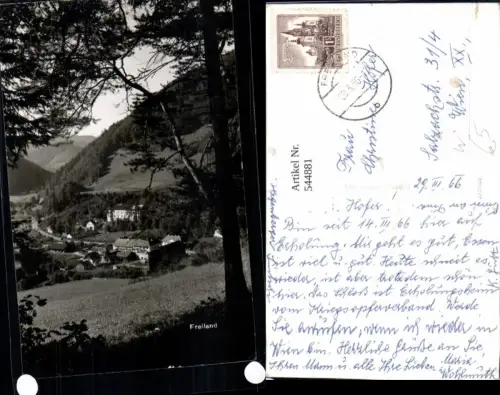 Freiland
Artikel Nr.
544881
Frau
Christine Hofer
31/4
Wien, XX.,
W 65
29. III 66
Hofer
Bin seit 14. III 66 hier auf
Erholung. Mir geht es gut, Essen
ist viel u. gut. Heute schneit es
wieder ist aber trotzdem schön
hier. Das Schloß ist Erholungsheim
vom Kriegsopferverband. Werde
Sie anrufen, wenn ich wieder in
Wien bin. Herzliche Grüße an Sie,
Ihren Mann u. alle Ihre Lieben Maria
Wohlmuth